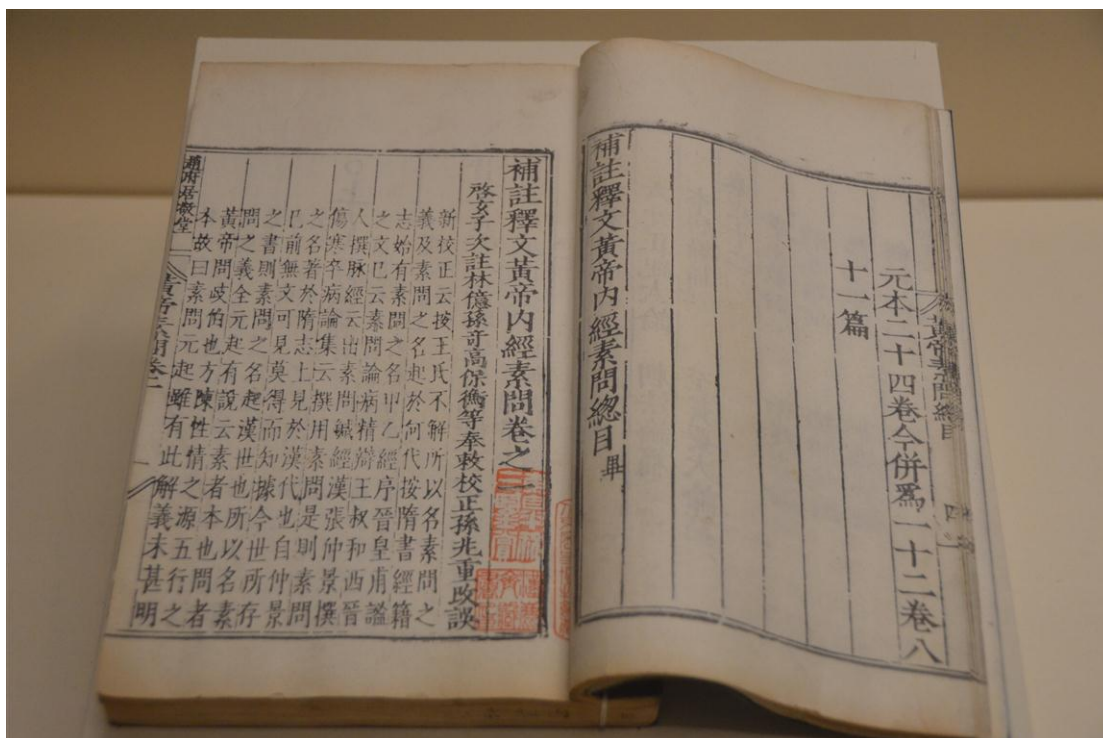 元本二十四卷今併爲一十二卷八
十一篇
補註釋文黃帝内經素問總目畢
黃帝素問總目
補註釋文黃帝内經素問卷之一
啓玄子次註林億孫竒高保衡等奉敕校正孫兆重改誤
新校正云按王氏不解所以名素問之
義及素問之名起於何代按隋書經籍
志始有素問之名甲乙經序晉皇甫謐
之文已云素問論病精辯王叔和西晉
人撰脉經云出素問鍼經漢張仲景撰
傷寒卒病論集云撰用素問是則素問
之名著於隋志上見於漢代也自仲景
已前無文可見莫得而知據今世所存
之書則素問之名起漢世也所以名素
問之義全元起有說云素者本也問者
黃帝問岐伯也方陳性情之源五行之
本故曰素問元起雖有此解義未甚明
趙府居敬堂
黃帝素問卷一